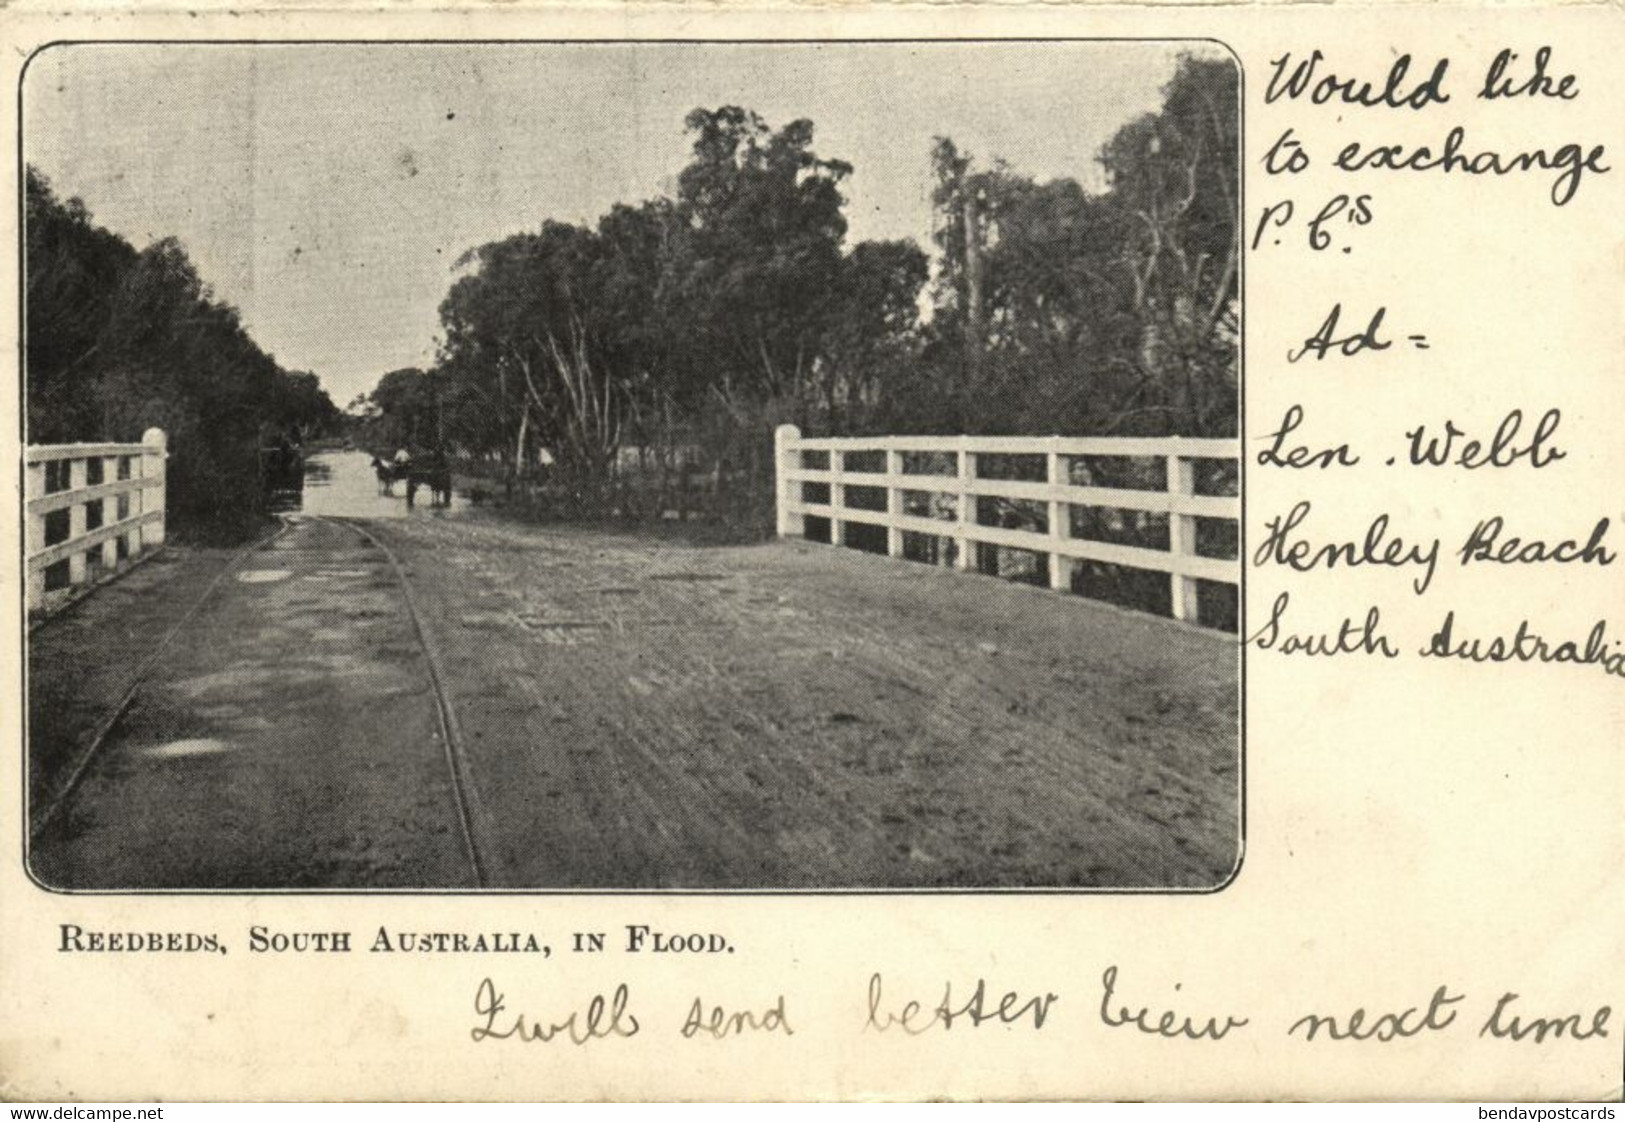 Would like
to exchange
P. C's.
Ad =
Len. Webb
Henley Beach
South Australia
REEDBEDS, SOUTH AUSTRALIA, IN FLOOD.
I will send better view next time
www.delcampe.net
bendavpostcards